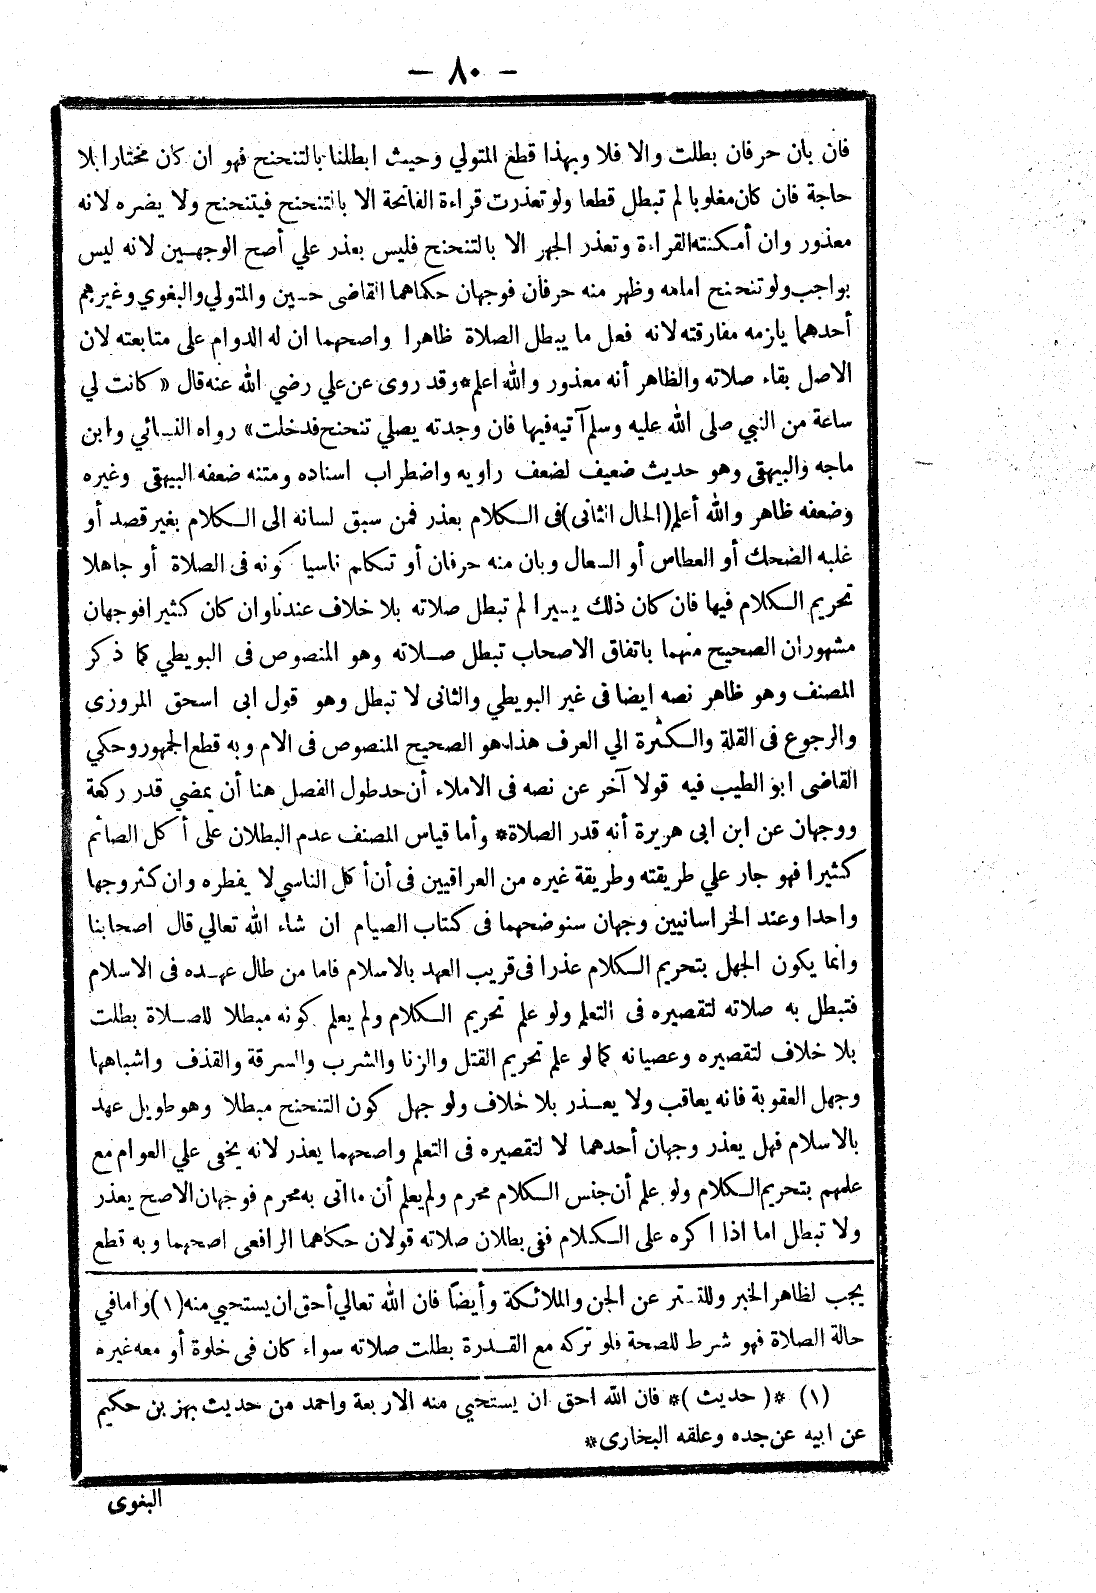 - ٨٠ -
فان بان حرفان بطلت والا فلا وبهذا قطع المتولي وحيث ابطلنا بالتنحنح فهو ان كان مختارا بلا
حاجة فان كان مغلوبا لم تبطل قطعا ولو تعذرت قراءة الفاتحة الا بالتنحنح فيتنحنح ولا يضره لانه
معذور وان أمكنته القراءة وتعذر الجهر الا بالتنحنح فليس بعذر علي أصح الوجهين لانه ليس
بواجب ولو تنحنح امامه وظهر منه حرفان فوجهان حكاهما القاضى حسين والمتولي والبغوي وغيرهم
أحدهما يلزمه مفارقته لانه فعل ما يبطل الصلاة ظاهرا واصحهما ان له الدوام على متابعته لان
الاصل بقاء صلاته والظاهر أنه معذور والله اعلم* وقد روى عن علي رضي الله عنه قال « كانت لي
ساعة من النبي صلى الله عليه وسلم آتيه فيها فان وجدته يصلي تنحنح فدخلت» رواه النسائي وابن
ماجه والبيهقى وهو حديث ضعيف لضعف راويه واضطراب اسناده ومتنه ضعفه البيهقى وغيره
وضعفه ظاهر والله أعلم (الحال الثانى) فى الكلام بعذر فمن سبق لسانه الى الكلام بغير قصد أو
غلبه الضحك أو العطاس أو السعال وبان منه حرفان أو تكلم ناسيا كونه فى الصلاة أو جاهلا
تحريم الكلام فيها فان كان ذلك يسيرا لم تبطل صلاته بلا خلاف عندنا وان كان كثيرا فوجهان
مشهوران الصحيح منهما باتفاق الاصحاب تبطل صلاته وهو المنصوص فى البويطي كما ذكر
المصنف وهو ظاهر نصه ايضا فى غير البويطي والثانى لا تبطل وهو قول ابى اسحق المروزى
والرجوع فى القلة والكثرة الي العرف هذا هو الصحيح المنصوص فى الام وبه قطع الجمهور وحكي
القاضى ابو الطيب فيه قولا آخر عن نصه فى الاملاء أن حد طول الفصل هنا أن يمضي قدر ركعة
ووجهان عن ابن ابى هريرة أنه قدر الصلاة* وأما قياس المصنف عدم البطلان على أكل الصائم
كثيرا فهو جار علي طريقته وطريقة غيره من العراقيين فى أن أكل الناسي لا يفطره وان كثر وجها
واحدا وعند الخراسانيين وجهان سنوضحهما فى كتاب الصيام ان شاء الله تعالي قال اصحابنا
وانما يكون الجهل بتحريم الكلام عذرا فى قريب العهد بالاسلام فاما من طال عهده فى الاسلام
فتبطل به صلاته لتقصيره فى التعلم ولو علم تحريم الكلام ولم يعلم كونه مبطلا للصلاة بطلت
بلا خلاف لتقصيره وعصيانه كما لو علم تحريم القتل والزنا والشرب والسرقة والقذف واشباهها
وجهل العقوبة فانه يعاقب ولا يعذر بلا خلاف ولو جهل كون التنحنح مبطلا وهو طويل عهد
بالاسلام فهل يعذر وجهان أحدهما لا لتقصيره فى التعلم واصحهما يعذر لانه يخفى علي العوام مع
علمهم بتحريم الكلام ولو علم أن جنس الكلام محرم ولم يعلم أن ما اتى به محرم فوجهان الاصح يعذر
ولا تبطل اما اذا اكره على الكلام ففى بطلان صلاته قولان حكاهما الرافعى اصحهما وبه قطع
يجب لظاهر الخبر وللتستر عن الجن والملائكة وأيضاً فان الله تعالي أحق ان يستحيي منه (١) واما في
حالة الصلاة فهو شرط للصحة فلو تركه مع القدرة بطلت صلاته سواء كان فى خلوة أو معه غيره
(١) *( حديث )* فان الله احق ان يستحيى منه الاربعة واحمد من حديث بهز بن حكيم
عن ابيه عن جده وعلقه البخارى*
البغوى